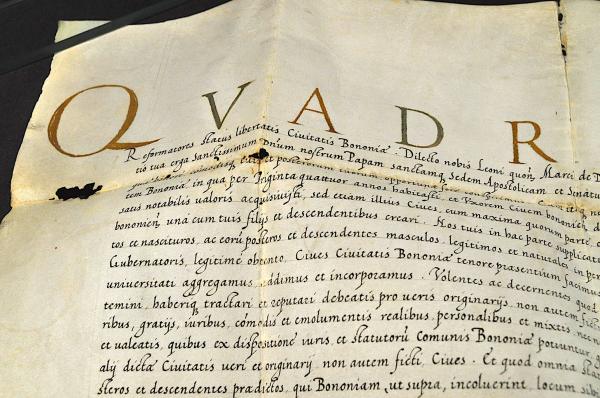 QVADR
Reformatores status libertatis Ciuitatis Bononiæ. Dilecto nobis Leoni quoñ. Marci de D
tio tua erga sanctissimum Dñum nostrum Papam sanctamq, Sedem Apostolicam et Senatu
posterorum tuorum
tem Bononiæ in qua per Triginta quattuor annos habitasti, et Vxorem Ciuem bononieñ d
satis notabilis valoris acquisiuisti, sed etiam illius Ciues, cum maxima quorum parte, c
bononieñ una cum tuis filijs et descendentibus creari. Nos tuis in hac parte supplicatio
tos et nascituros, ac eorū posteros et descendentes masculos, legitimos et naturales, in per
Gubernatoris, legitime obtento, Ciues Ciuitatis Bononiæ tenore præsentium facimus
uniuersitati aggregamus, addimus et incorporamus. Volentes ac decernentes quod
temini, haberiq, tractari et reputari debeatis pro ueris originarijs, non autem fictis
ribus, gratijs, iuribus, cōmodis et emolumentis realibus, personalibus et mixtis, nec n
et ualeatis, quibus ex dispositione iuris, et statutorū Comunis Bononiæ potiuntur, g
alij dictæ Ciuitatis ueri et originarij, non autem ficti, Ciues. Et quod omnia stat
steros et descendentes prædictos, qui Bononiam, ut supra, incoluerint, locum sibi